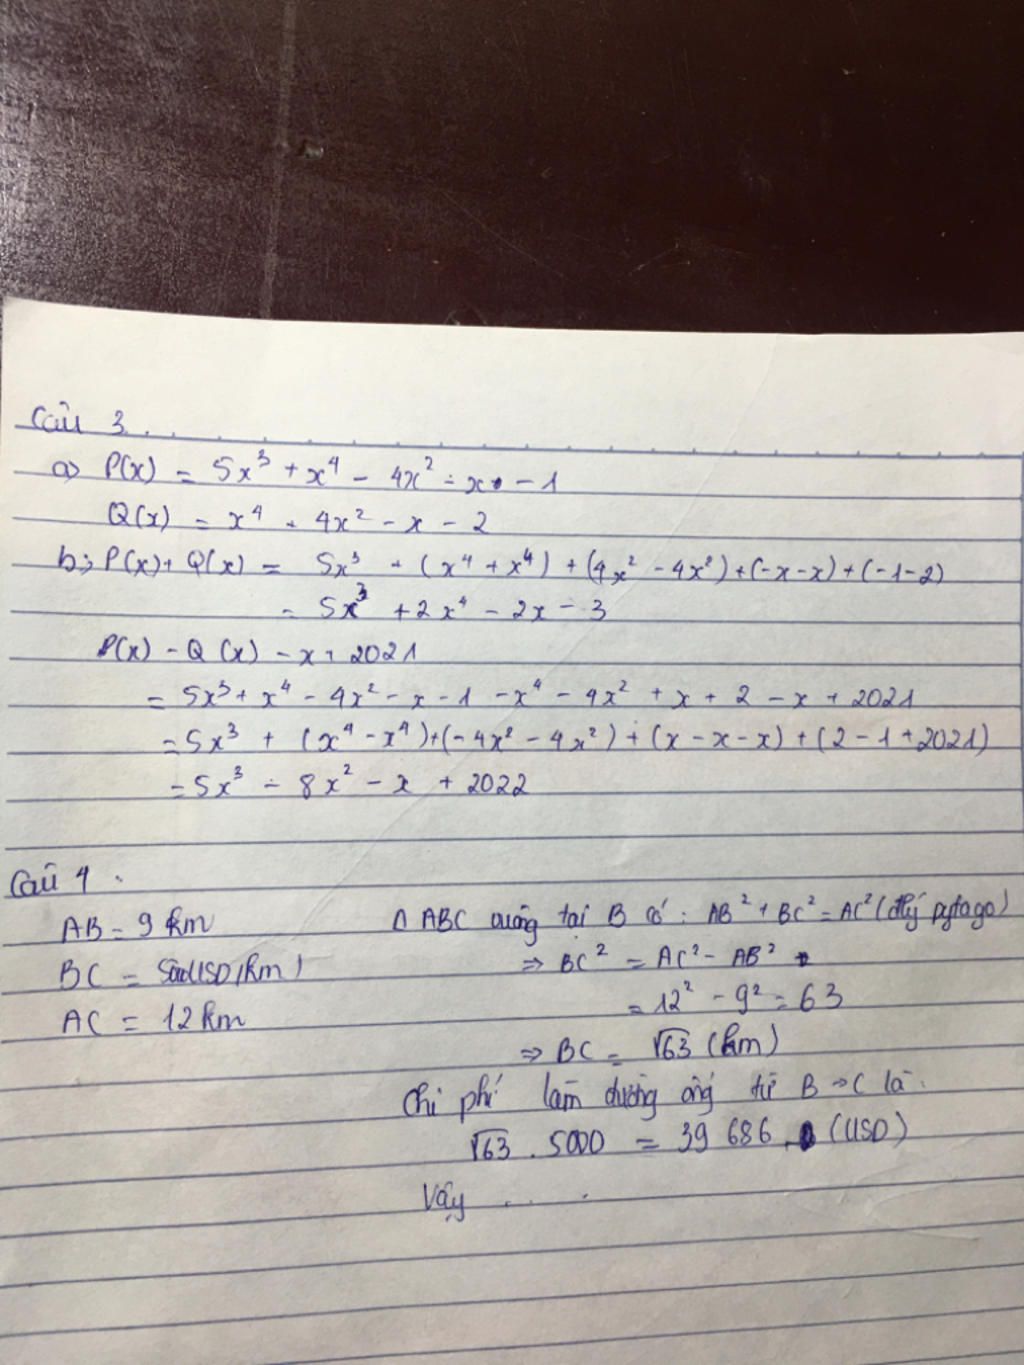 Câu 3.
a) P(x) = 5x³ + x⁴ - 4x² - x - 1
Q(x) = x⁴ + 4x² - x - 2
b, P(x) + Q(x) = 5x³ + (x⁴ + x⁴) + (4x² - 4x²) + (-x-x) + (-1-2)
= 5x³ + 2x⁴ - 2x - 3
P(x) - Q(x) - x + 2021
= 5x³ + x⁴ - 4x² - x - 1 - x⁴ - 4x² + x + 2 - x + 2021
= 5x³ + (x⁴ - x⁴) + (-4x² - 4x²) + (x - x - x) + (2 - 1 + 2021)
= 5x³ - 8x² - x + 2022
Câu 4.
AB = 9 km
BC = 5000USD/km)
AC = 12 km
Δ ABC vuông tại B có : AB² + BC² = AC² (đlý pytago)
⇒ BC² = AC² - AB²
= 12² - 9² = 63
⇒ BC = √63 (km)
Chi phí làm đường ống từ B → C là.
√63 . 5000 = 39 686 (USD)
Vậy . . . .